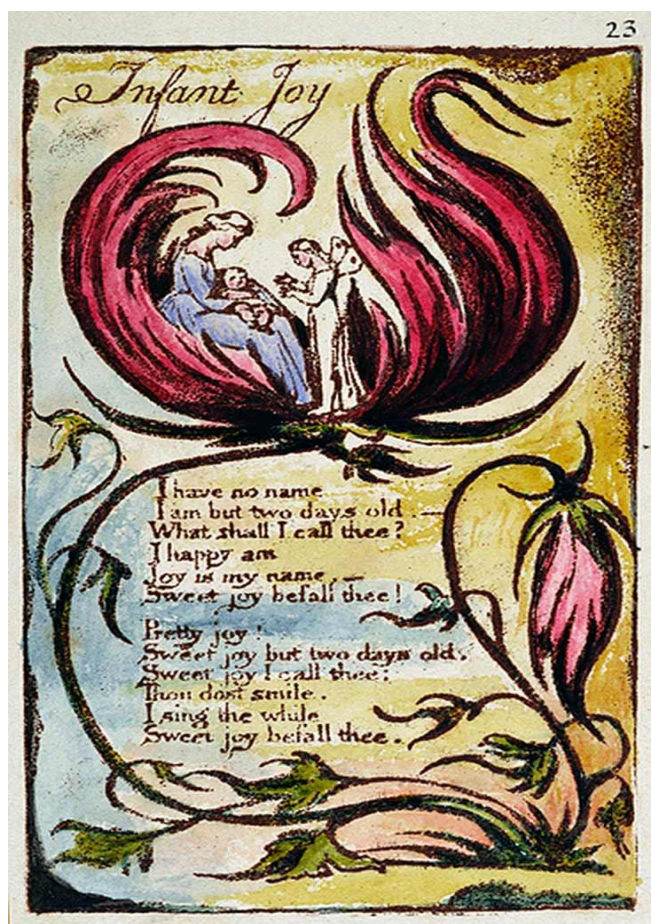 23
Infant Joy
I have no name
I am but two days old. —
What shall I call thee?
I happy am
Joy is my name, —
Sweet joy befall thee!
Pretty joy!
Sweet joy but two days old.
Sweet joy I call thee:
Thou dost smile.
I sing the while
Sweet joy befall thee.